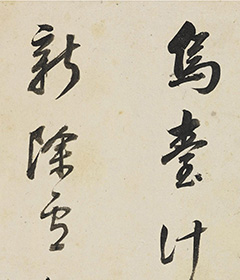 烏臺計
新除雪